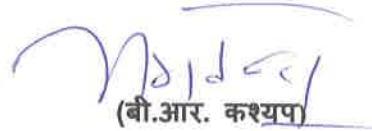 (बी.आर. कश्यप)